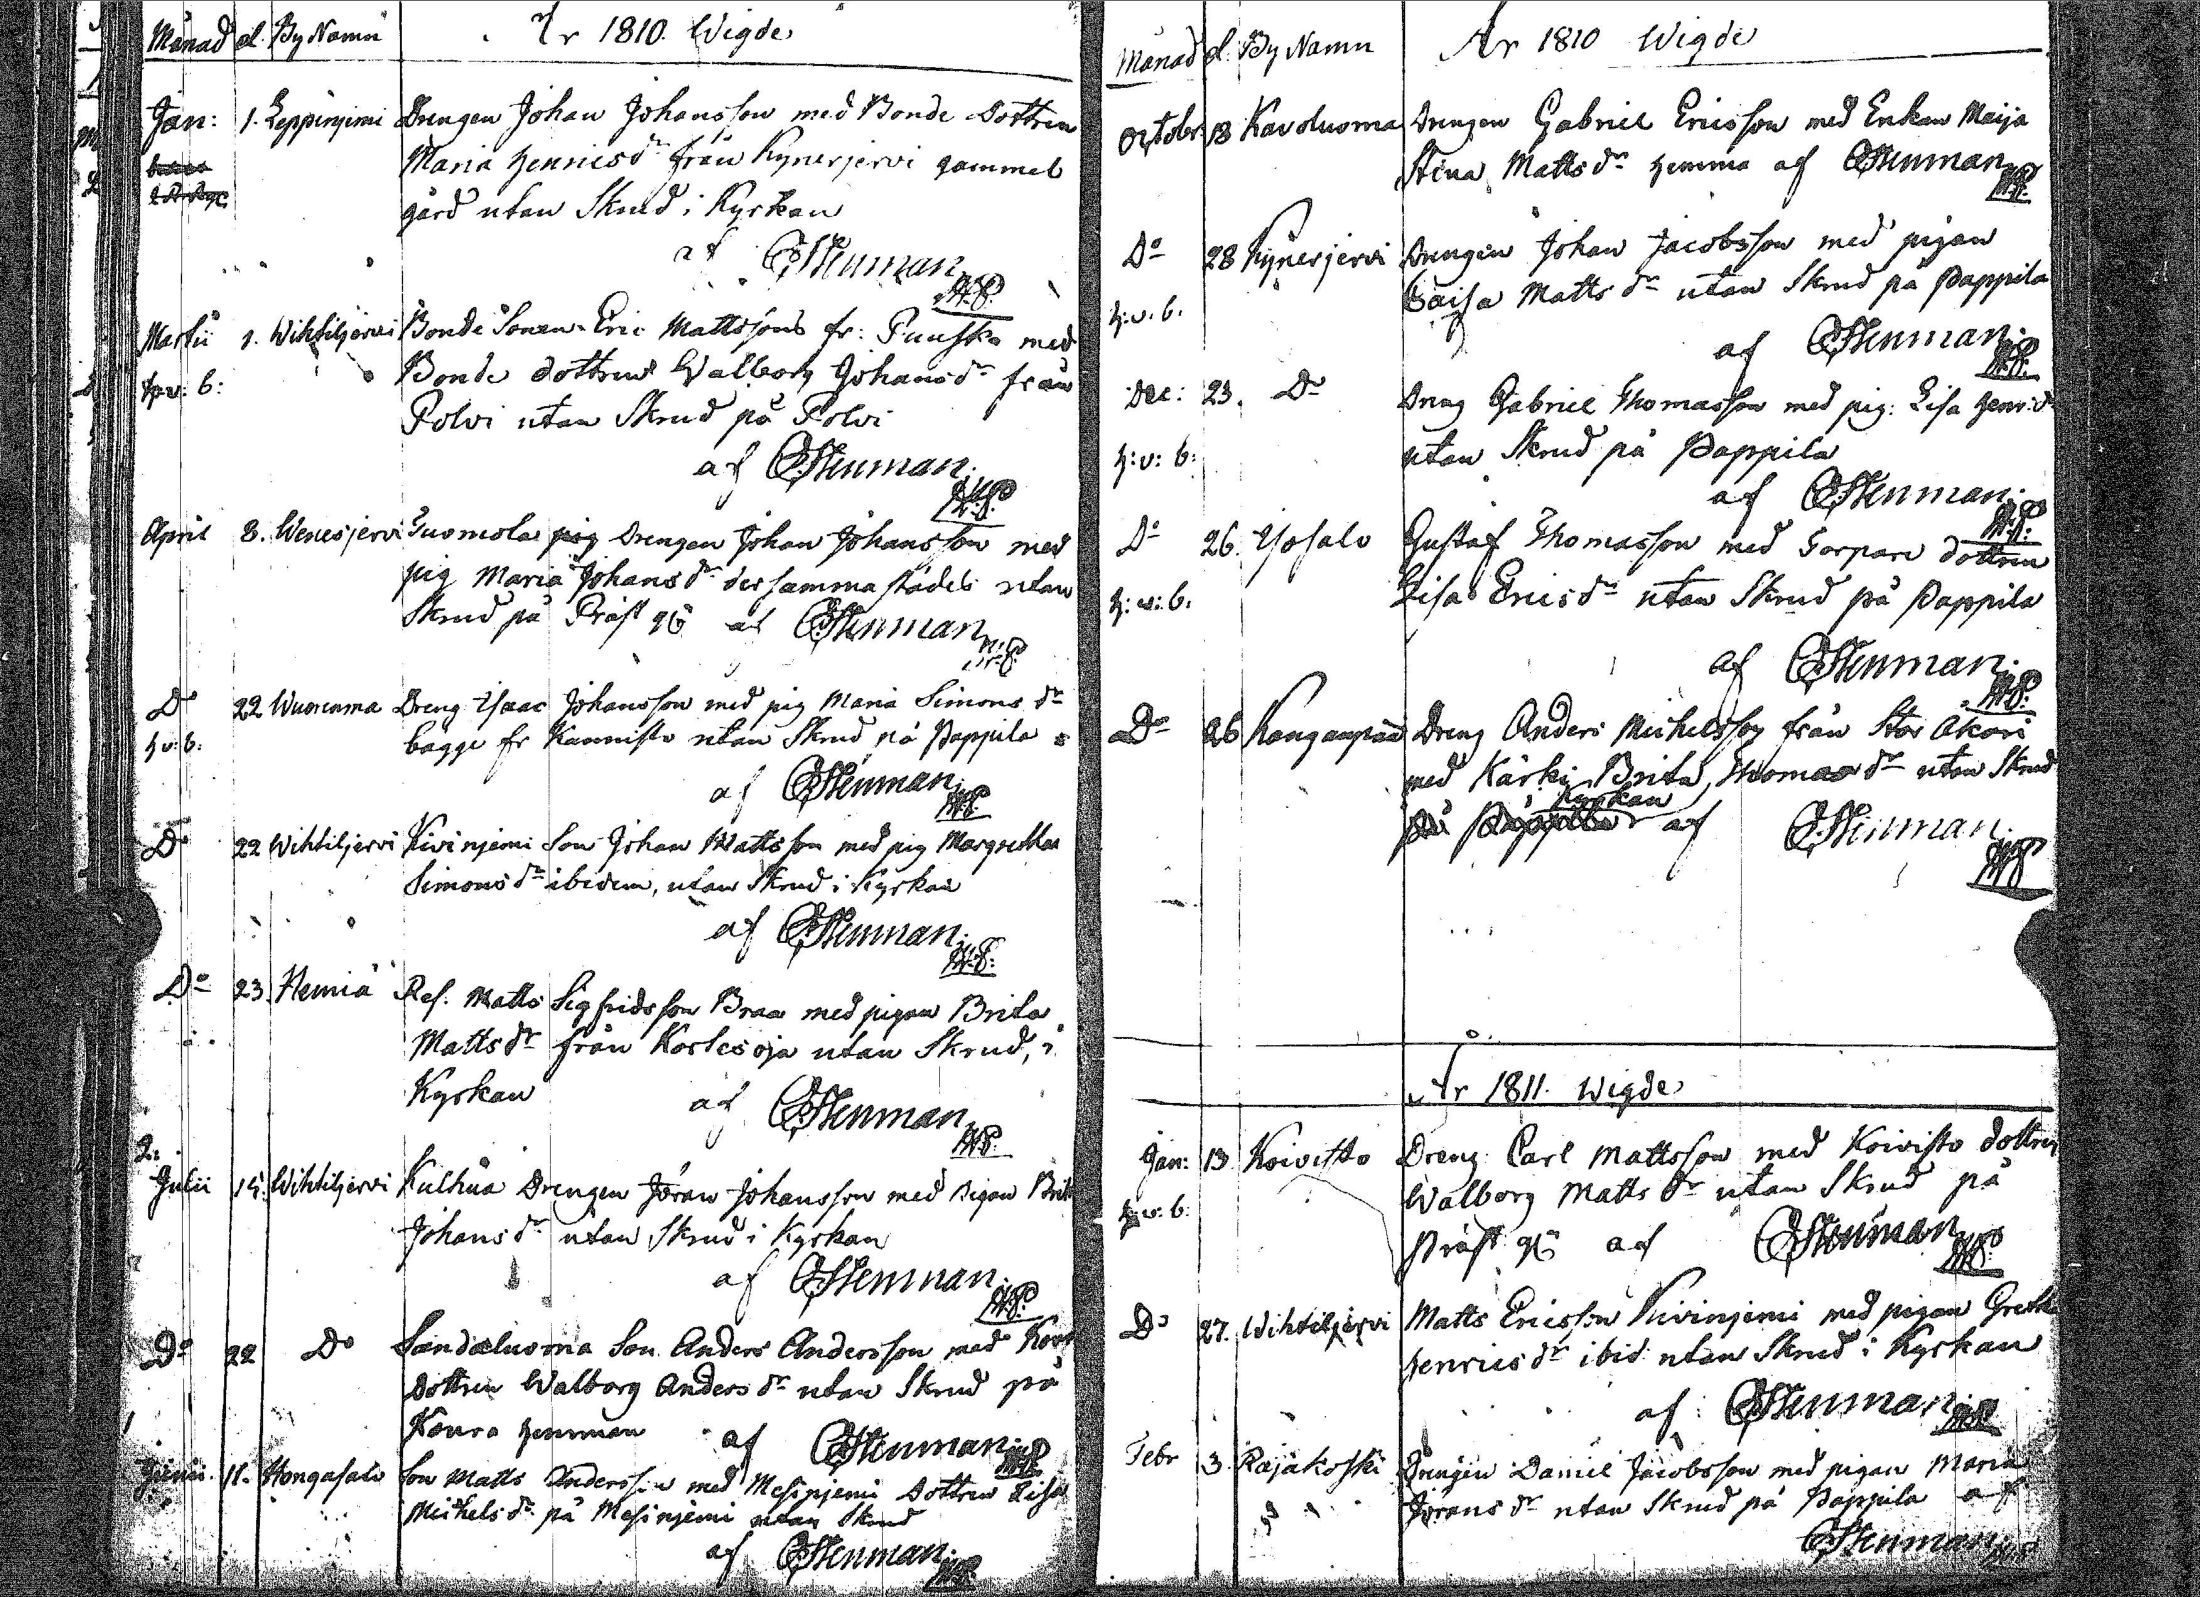 Månad d. By Namn År 1810. Wigde
Jan: 1. Leppinjemi Drengen Johan Johansson med Bonde Dottren
Maria Henricsdr från Kynerjervi gammel
gård utan Skrud i Kyrkan
af CJStenman
Martii 1. Wihtiljervi Bonde Sonen Eric Mattsons fr: Puuska med
h: v: b: Bonde dottren Walborg Johansdr från
Polvi utan Skrud på Polvi
af CJStenman.
April 8. Wenesjervi Tuomola Drengen Johan Johansson med
pig Maria Johansdr dersamma städes utan
Skrud på Präst gd af CJStenman
Do 22 Wuorenma Dreng Isaac Johansson med pig Maria Simonsdr
h: v: b: bägge fr Kannisto utan Skrud på Pappila
af CJStenman
Do 22 Wihtiljervi Kivinjemi Son Johan Mattsson med pig Margretha
Simonsdr ibidem, utan Skrud i Kyrkan
af CJStenman.
Do 23. Hemiä Ref. Matts Sigfridsson Braa med pigan Brita
Mattsdr från Kortesoja utan Skrud, i
Kyrkan af CJStenman
Julii 15. Wihtiljervi Kulhua Drengen Jöran Johansson med pigan Brit
Johansdr utan Skrud i Kyrkan
af CJStenman.
Do 22 Do Sandaluoma Son Anders Andersson med
Dottren Walborg Andersdr utan Skrud på
Koura hemman af CJStenman
Junii. 11. Hongasalo Son Matts Andersson med Mesinjemi Dottren Lisa
Michelsdr på Mesinjemi utan Skrud
af CJStenman.
Månad d. By Namn År 1810 Wigde
Octobr 18 Karoluoma Drengen Gabriel Ericsson med Enkan Maija
Stina Mattsdr hemma af CJStenman
Do 28 Kynerjervi Drengen Johan Jacobsson med pigan
h: v. b. Caisa Mattsdr utan Skrud på Pappila
af CJStenman.
Dec: 23. Do Dreng Gabriel Thomasson med pig: Lisa Henr:dr
h: v: b: utan Skrud på Pappila
af CJStenman.
Do 26. Ysosalo Gustaf Thomasson med Torpare dottren
h: v: b. Lisa Ericsdr utan Skrud på Pappila
af CJStenman.
Do 26 Kanganpää Dreng Anders Michelsson från Stor Akari
med Kärki Brita Thomasdr utan Skrud
Kyrkan
på Pappila af CJStenman.
År 1811. Wigde
Jan: 13 Koivisto Dreng Carl Mattsson med Koivisto dottren
h: v: b: Walborg Mattsdr utan Skrud på
Präst gd af CJStenman
Do 27. Wihtiljervi Matts Ericsson Kivinjemi med pigan Gretha
Henricsdr ibid: utan Skrud i Kyrkan
af CJStenman
Febr 3. Rajakoski Drengen Daniel Jacobsson med pigan Maria
Jöransdr utan Skrud på Pappila af
CJStenman